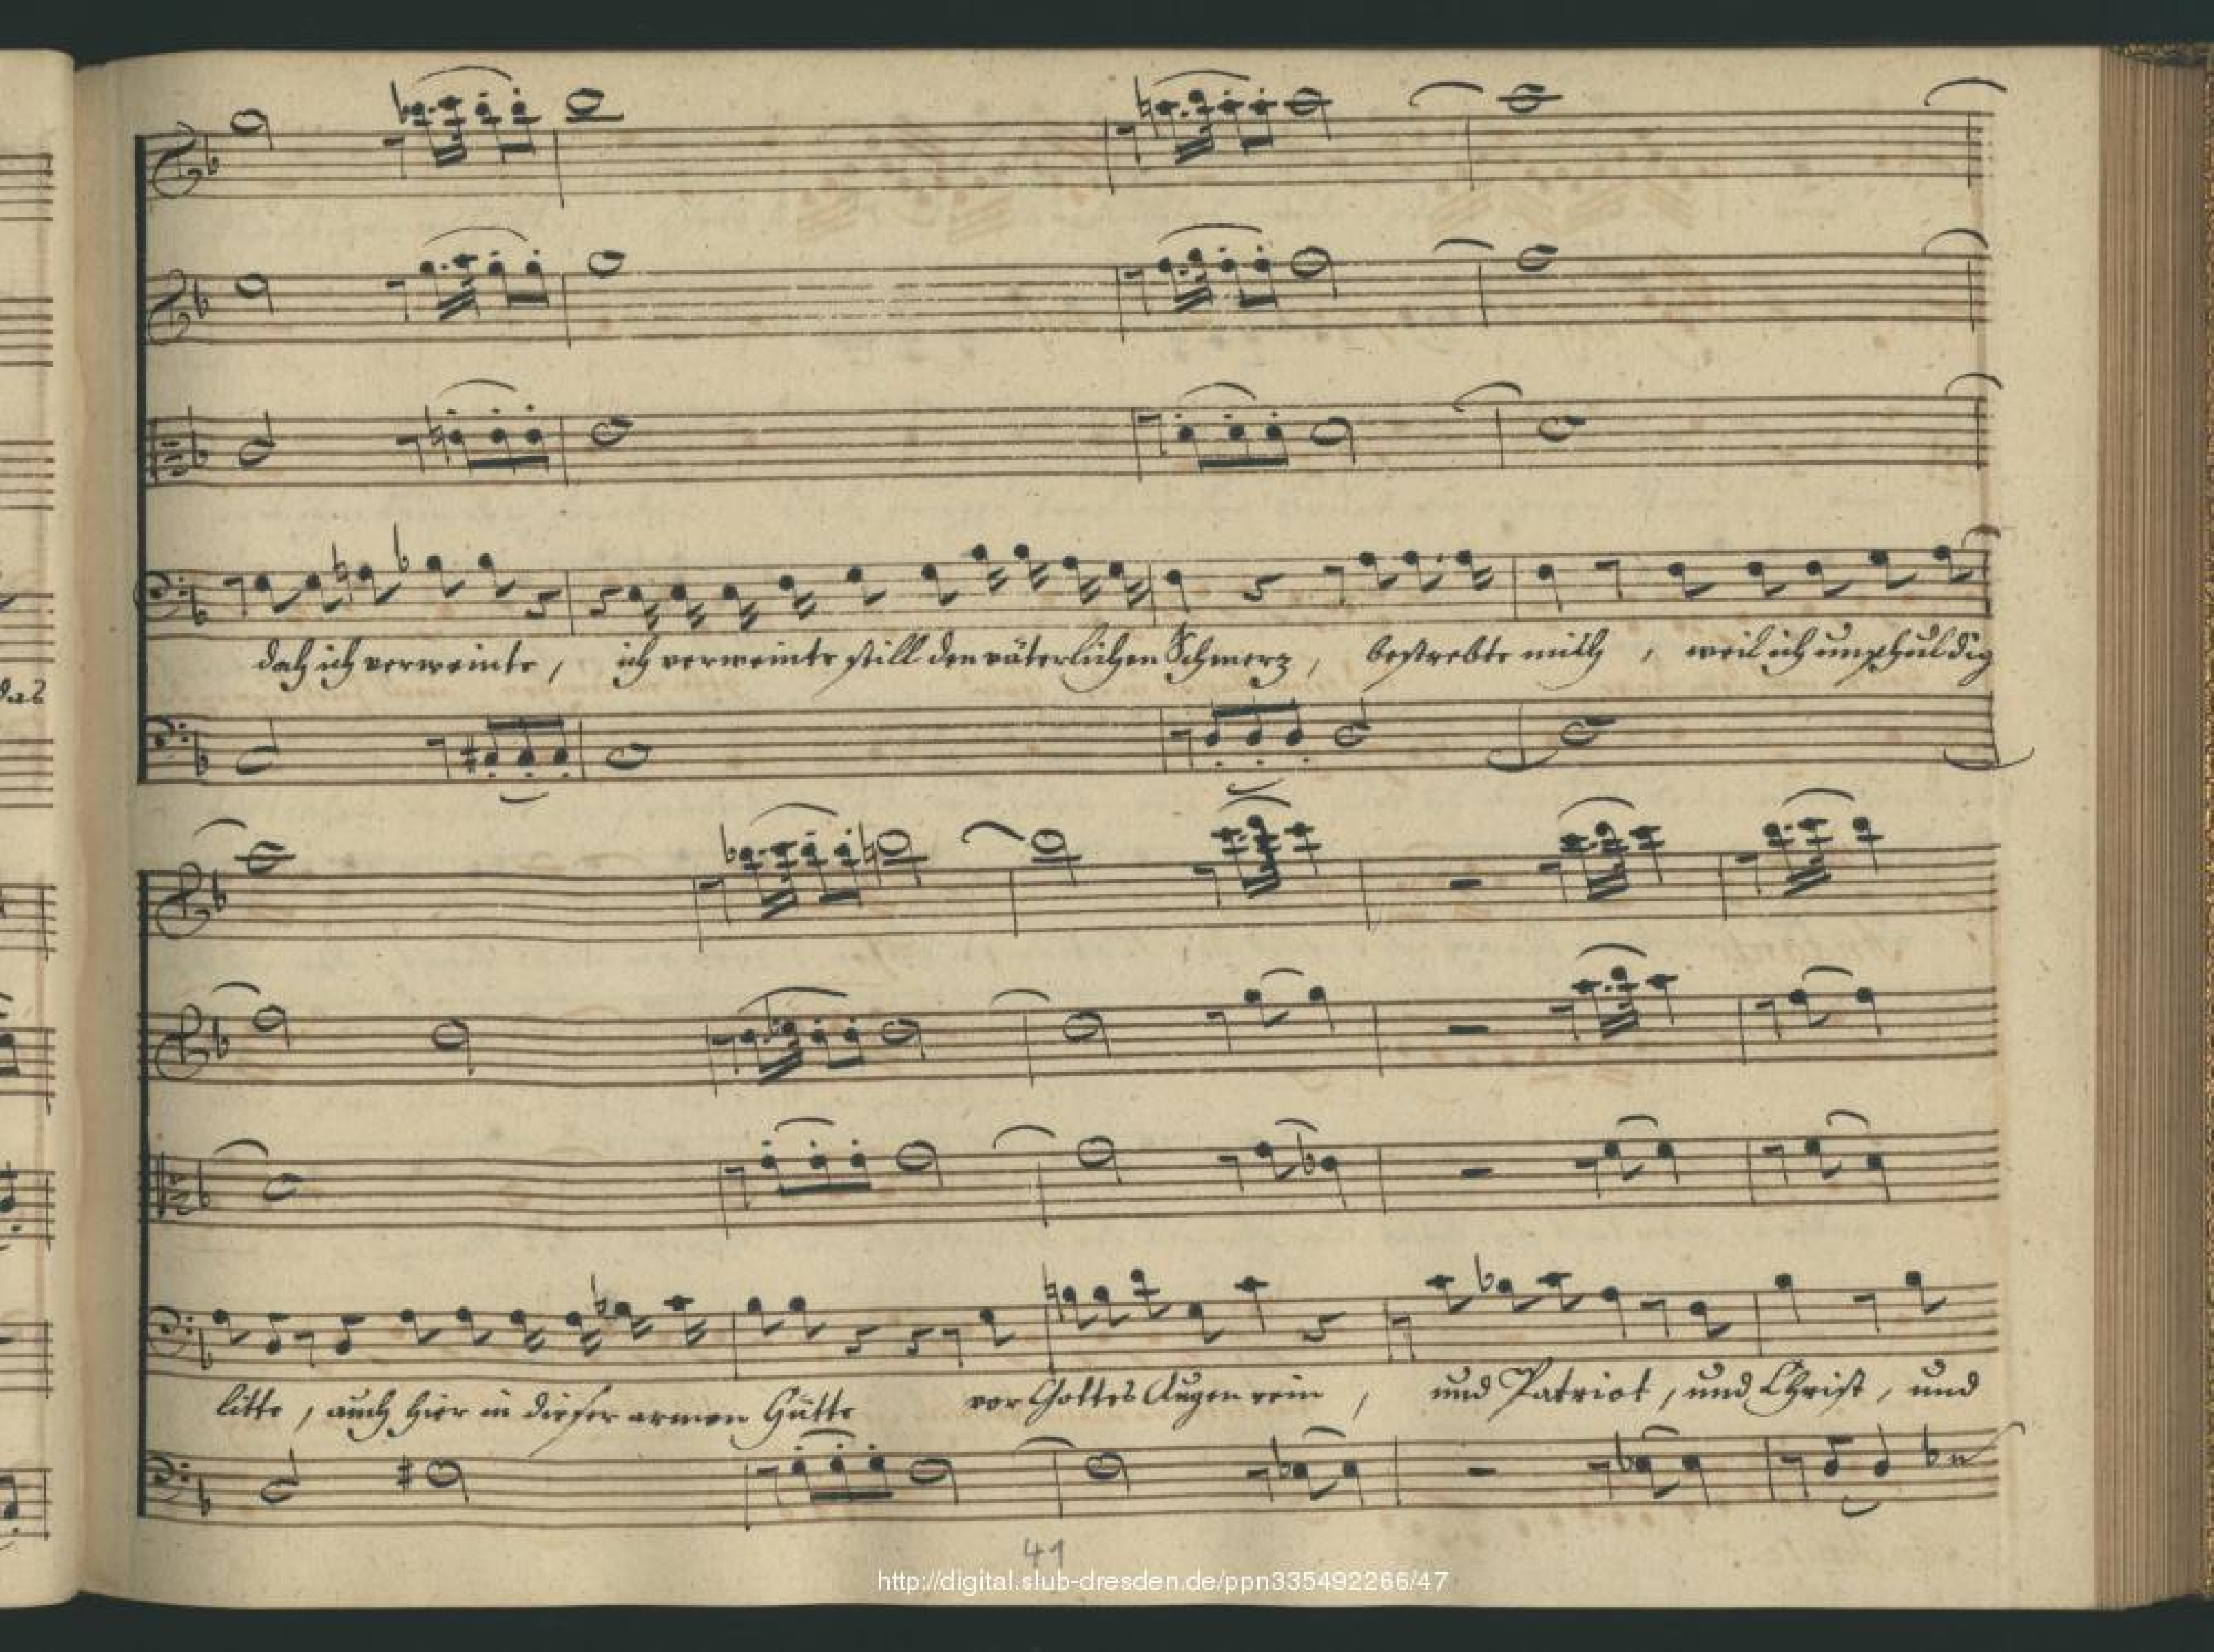 das
daß ich verweinte, ich verweinte still den väterlichen Schmerz, bestrebte mich, weil ich unschuldig
litte, auch hier in dieser armen Hütte vor Gottes Augen rein, und Patriot, und Christ, und
41
http://digital.slub-dresden.de/ppn335492266/47